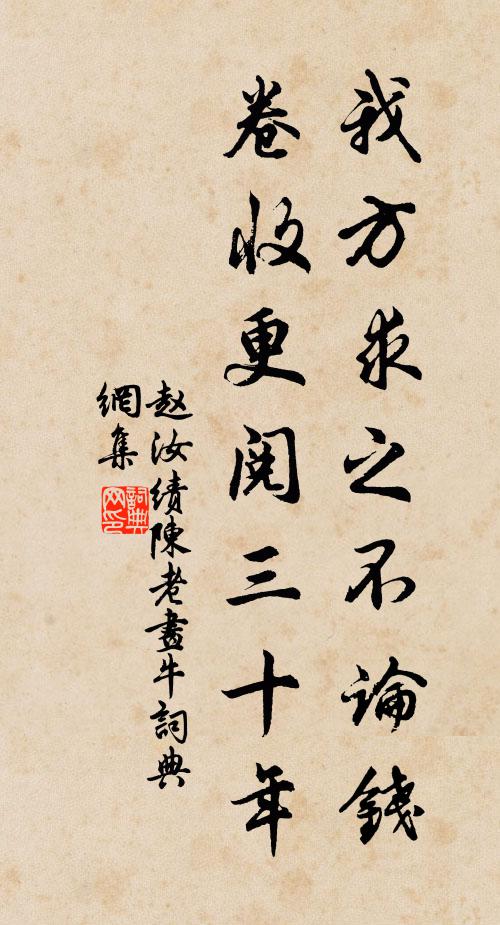 我方求之不論錢
卷收更閱三十年
赵汝績陳老畫牛詞典
網集
詞典
网印